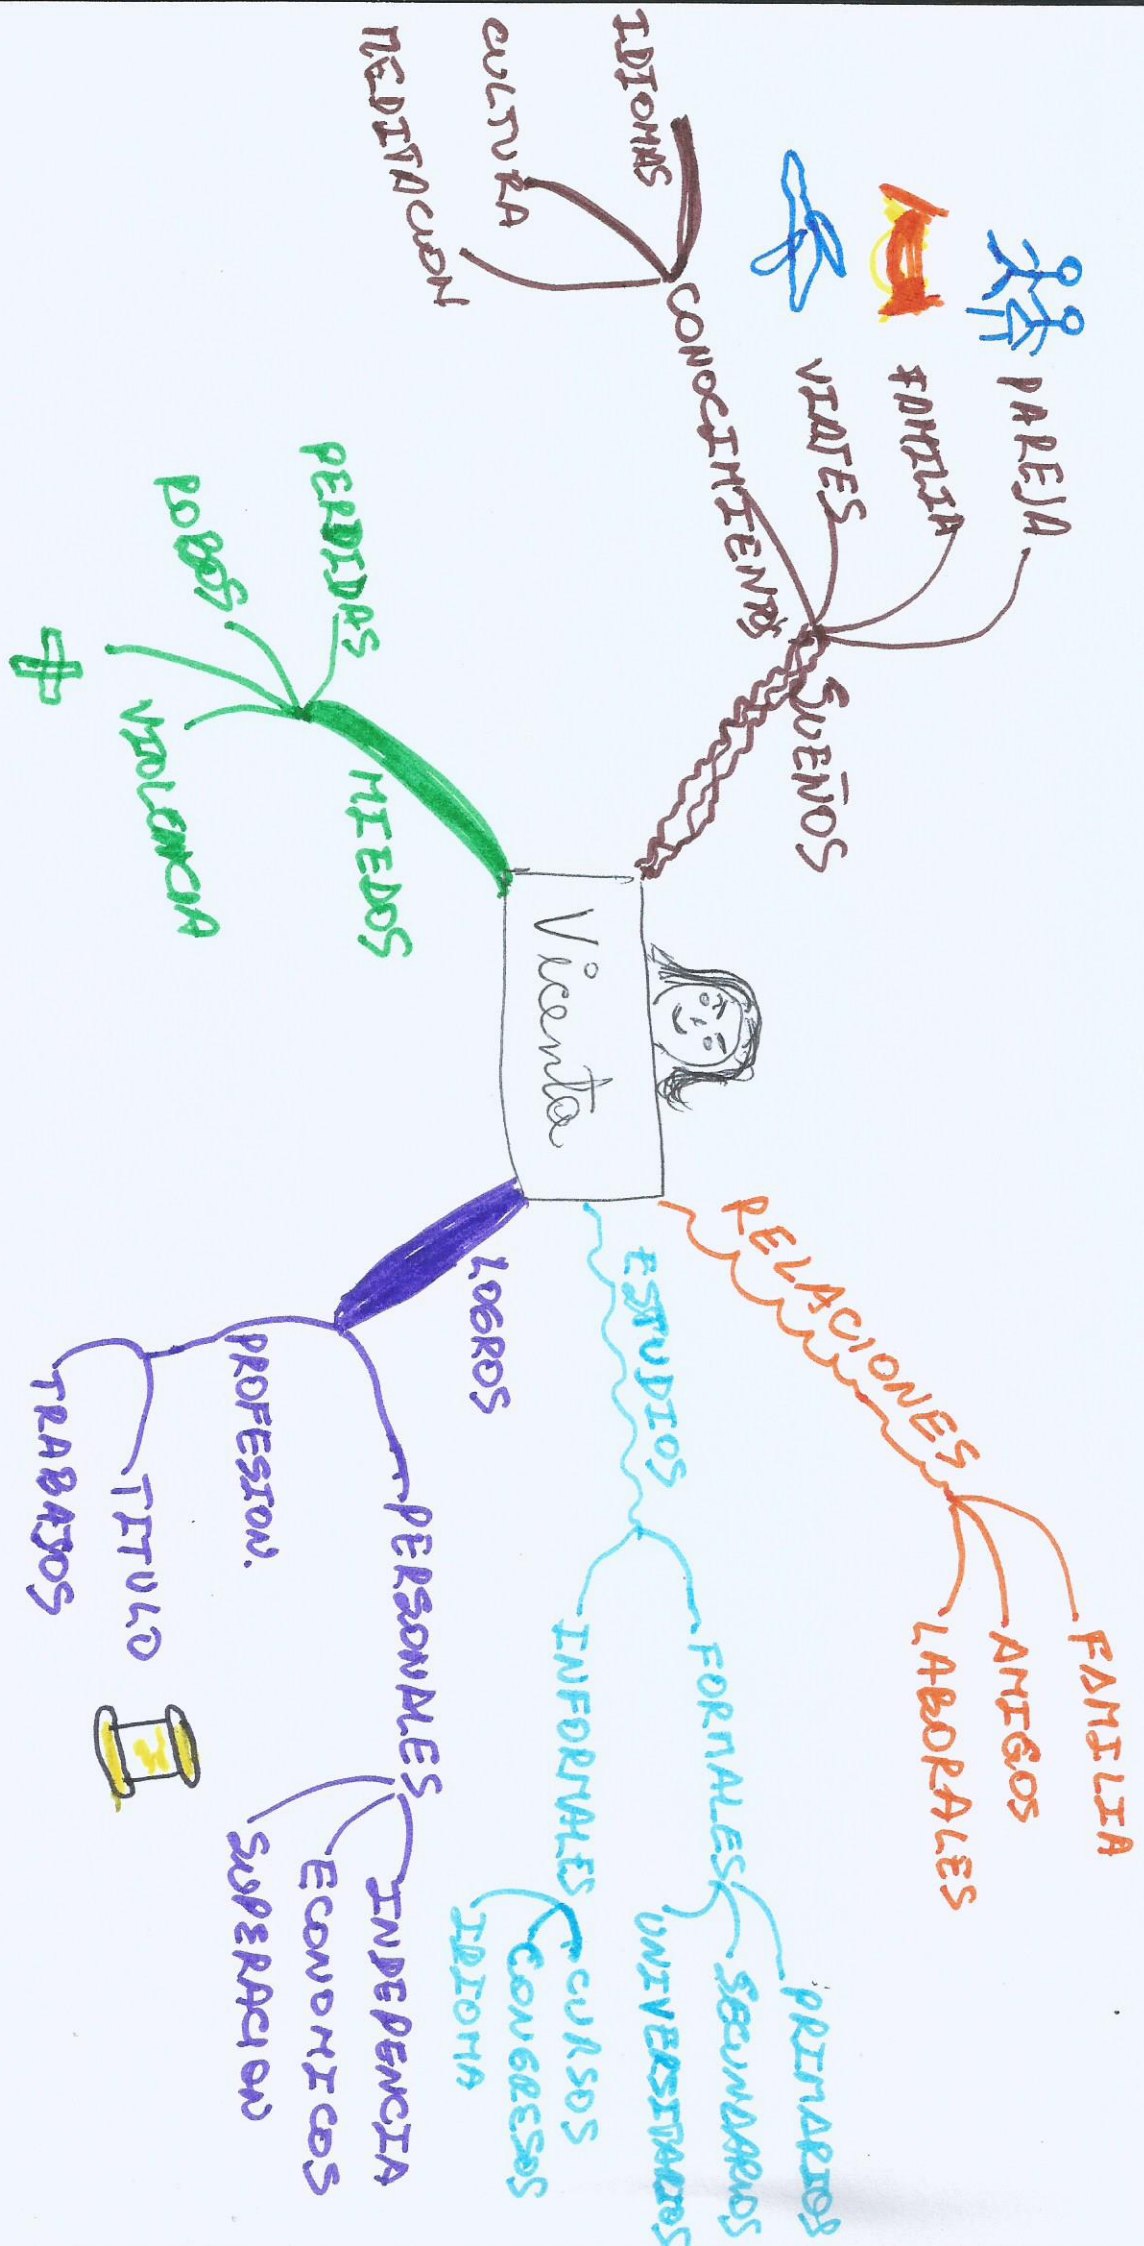 Vicenta
SUEÑOS
PAREJA
FAMILIA
VIAJES
CONOCIMIENTOS
IDIOMAS
CULTURA
MEDITACION
MIEDOS
PERDIDAS
ROBOS
VIOLENCIA
RELACIONES
FAMILIA
AMIGOS
LABORALES
ESTUDIOS
FORMALES
PRIMARIOS
SECUNDARIOS
UNIVERSITARIOS
INFORMALES
CURSOS
CONGRESOS
IDIOMA
LOGROS
PERSONALES
INDEPENCIA
ECONOMICOS
SUPERACION
PROFESION.
TITULO
TRABAJOS